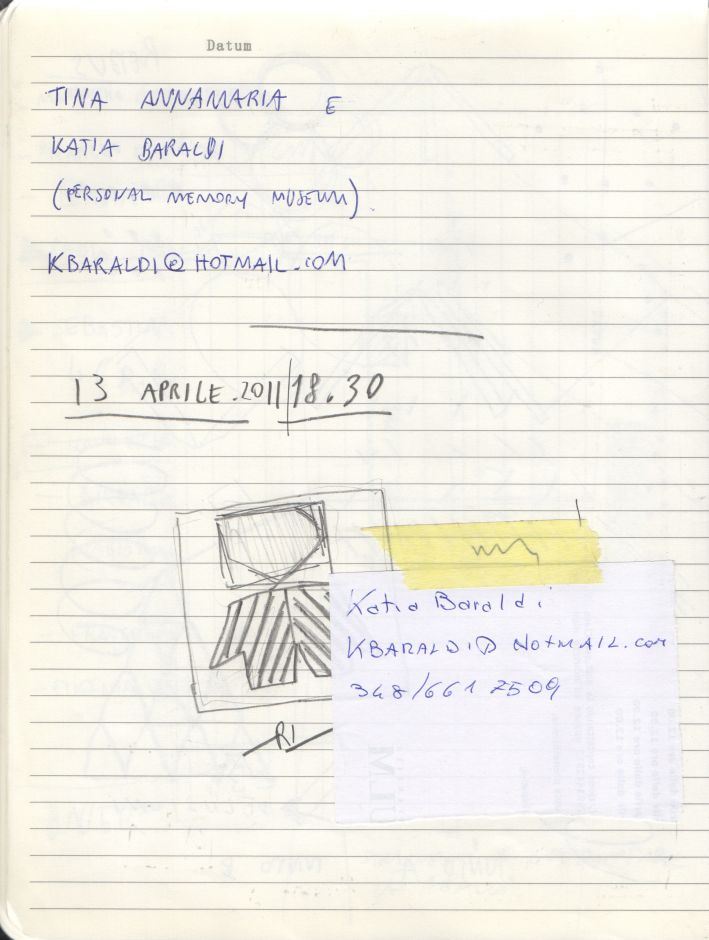 Datum
TINA ANNAMARIA E
KATIA BARALDI
(PERSONAL MEMORY MUSEUM).
KBARALDI@HOTMAIL.COM
13 APRILE.2011 18.30
Katia Baraldi
KBARALDI@HOTMAIL.com
348/661 2509
RI